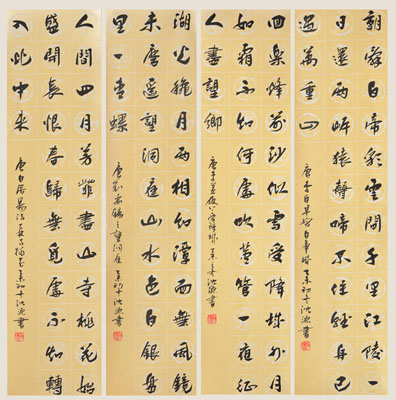 朝辭白帝彩雲間千里江陵一
日還兩岸猿聲啼不住輕舟已
過萬重山
唐李白早發白帝城
回樂烽前沙似雪受降城外月
如霜不知何處吹蘆管一夜征
人盡望鄉
唐李益
湖光秋月兩相和潭面無風鏡
未磨遙望洞庭山水色白銀盤
里一青螺
唐劉禹錫之望洞庭
人間四月芳菲盡山寺桃花始
盛開長恨春歸無覓處不知轉
入此中來
唐白居易詩